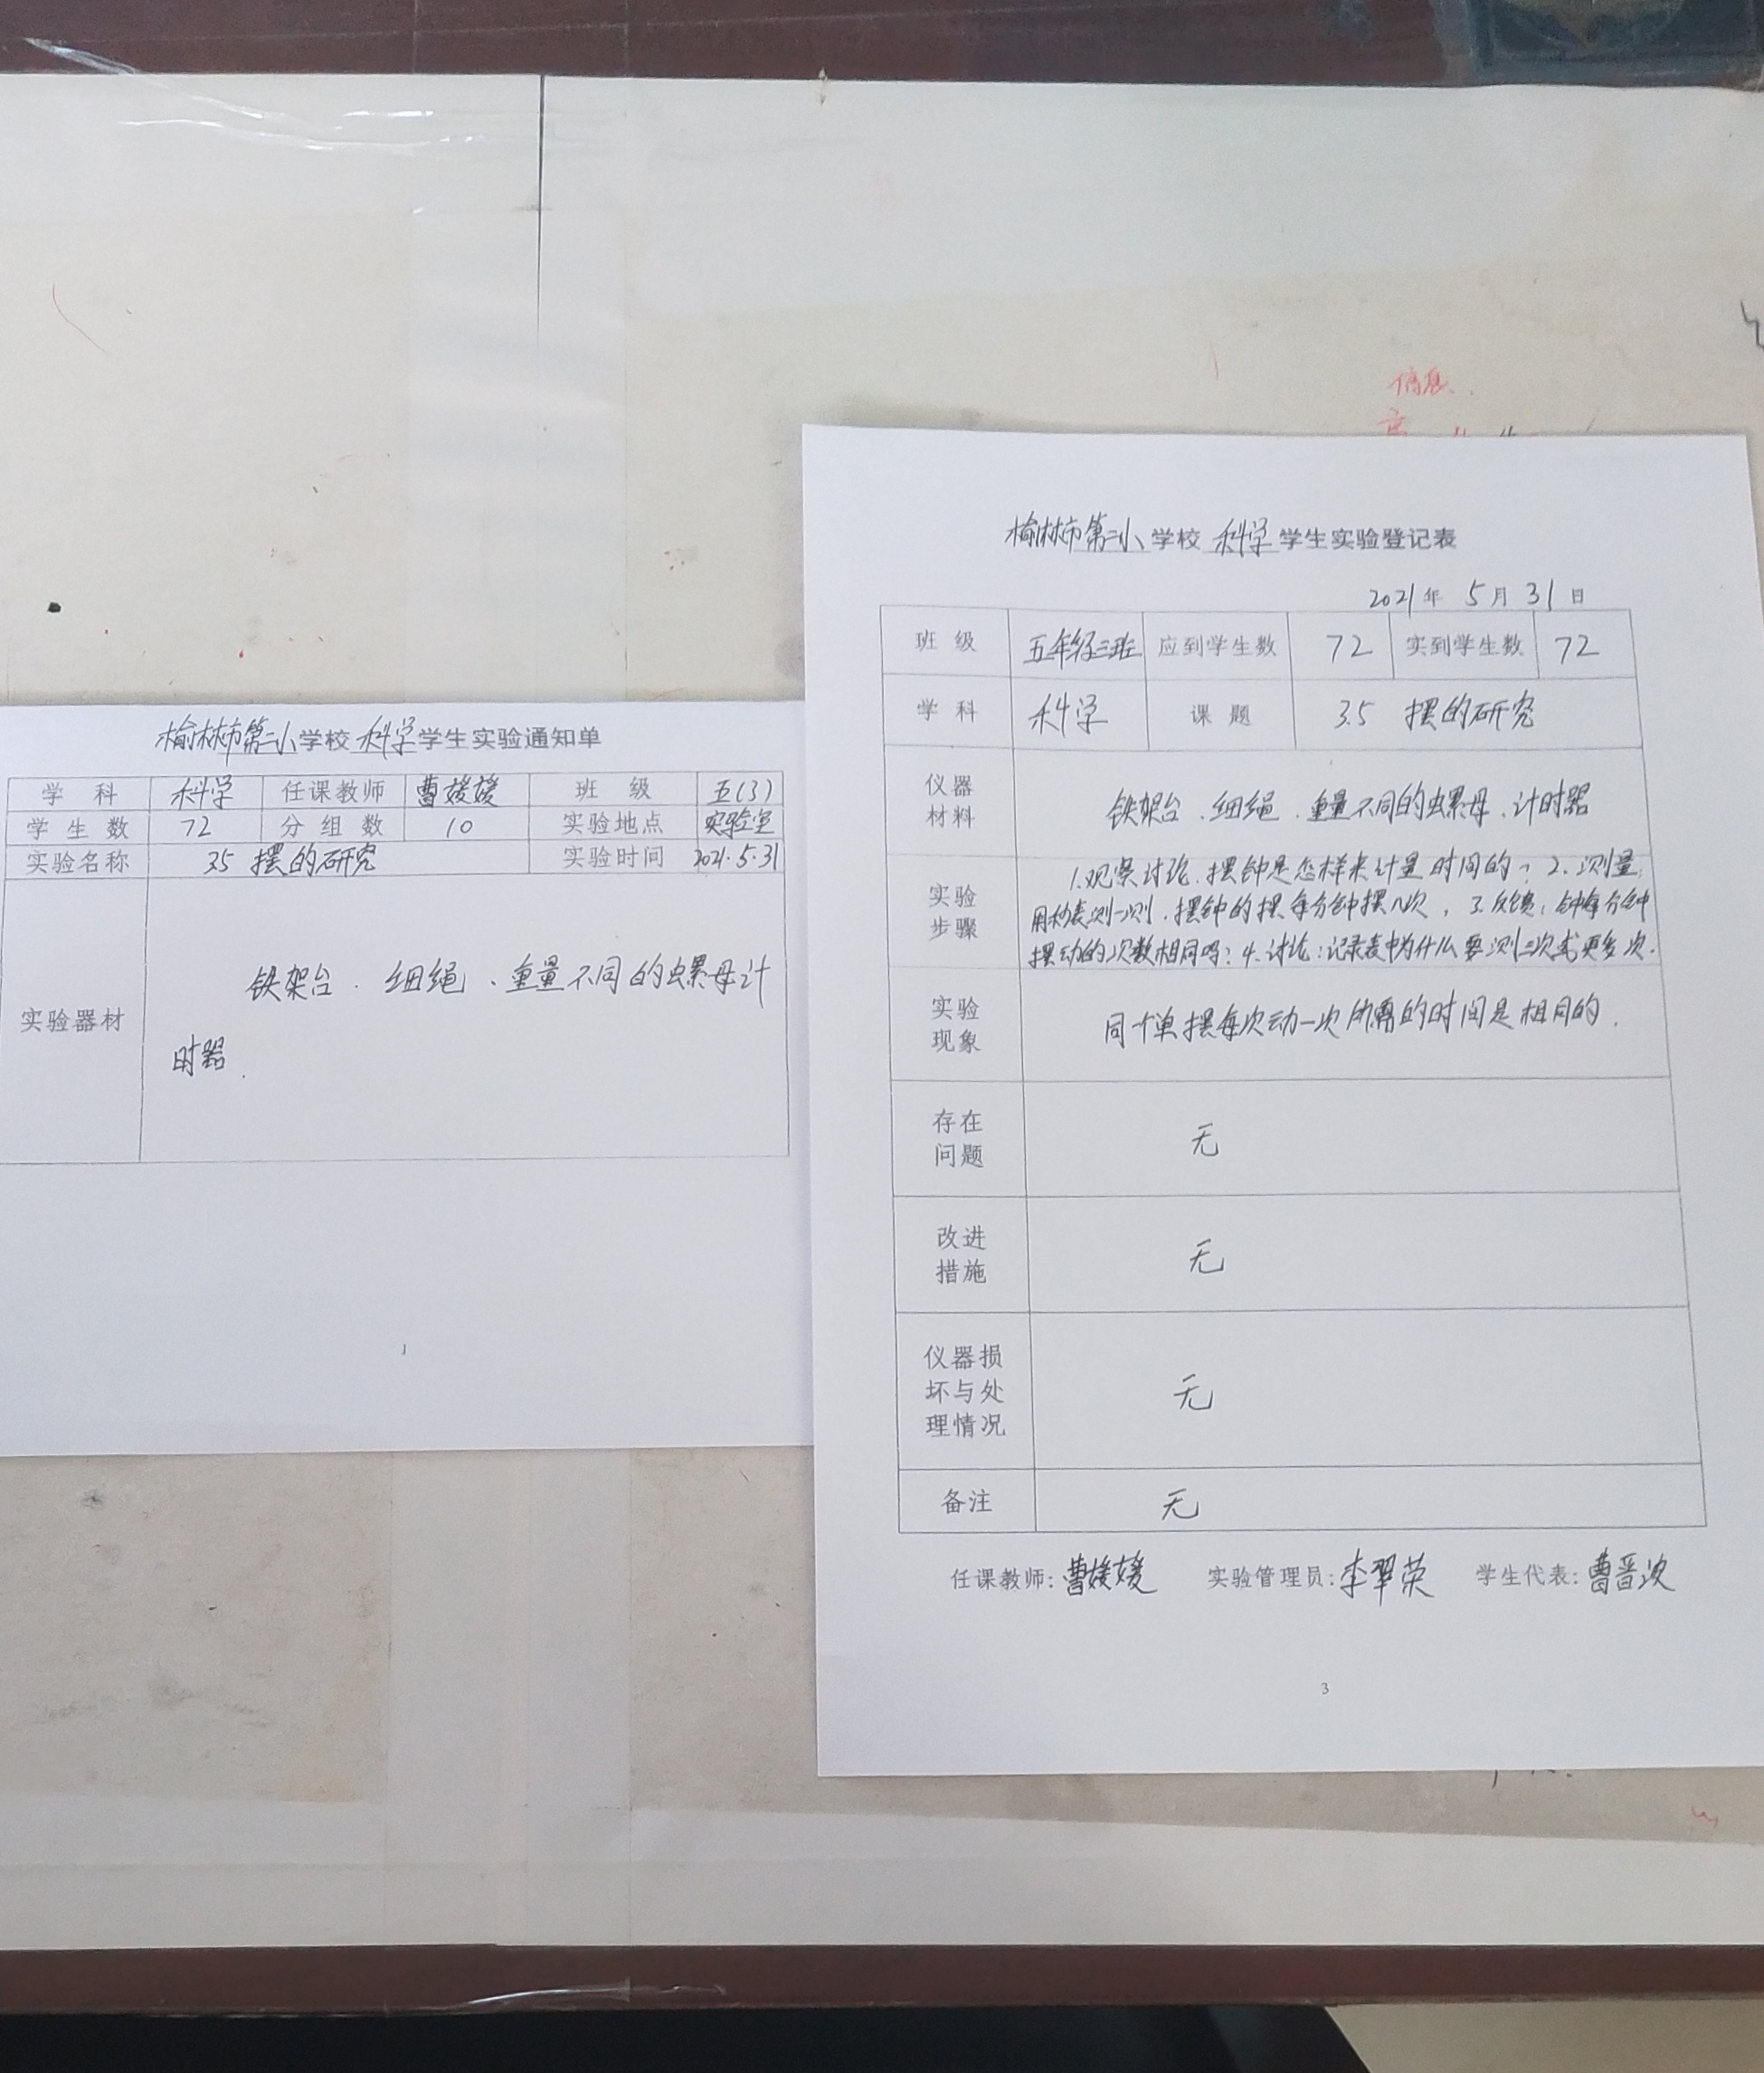 信息
榆林市第三小学校 科学 学生实验通知单
学科 科学 任课教师 曹媛媛 班级 五(3)
学生数 72 分组数 10 实验地点 实验室
实验名称 3.5 摆的研究 实验时间 2021.5.31
实验器材 铁架台、细绳、重量不同的螺母计
时器.
1
榆林市第三小学校 科学 学生实验登记表
2021年 5月 31日
班级 五年级三班 应到学生数 72 实到学生数 72
学科 科学 课题 3.5 摆的研究
仪器
材料
铁架台、细绳、重量不同的螺母、计时器
实验
步骤
1.观察讨论.摆钟是怎样来计量时间的? 2.测量:
用秒表测一测.摆钟的摆每分钟摆几次, 3.反馈:钟每分钟
摆动的次数相同吗? 4.讨论:记录表中为什么要测三次或更多次.
实验
现象
同一个单摆每次动一次所需的时间是相同的.
存在
问题
无
改进
措施
无
仪器损
坏与处
理情况
无
备注 无
任课教师:曹媛媛 实验管理员:李翠荣 学生代表:曹晋
3